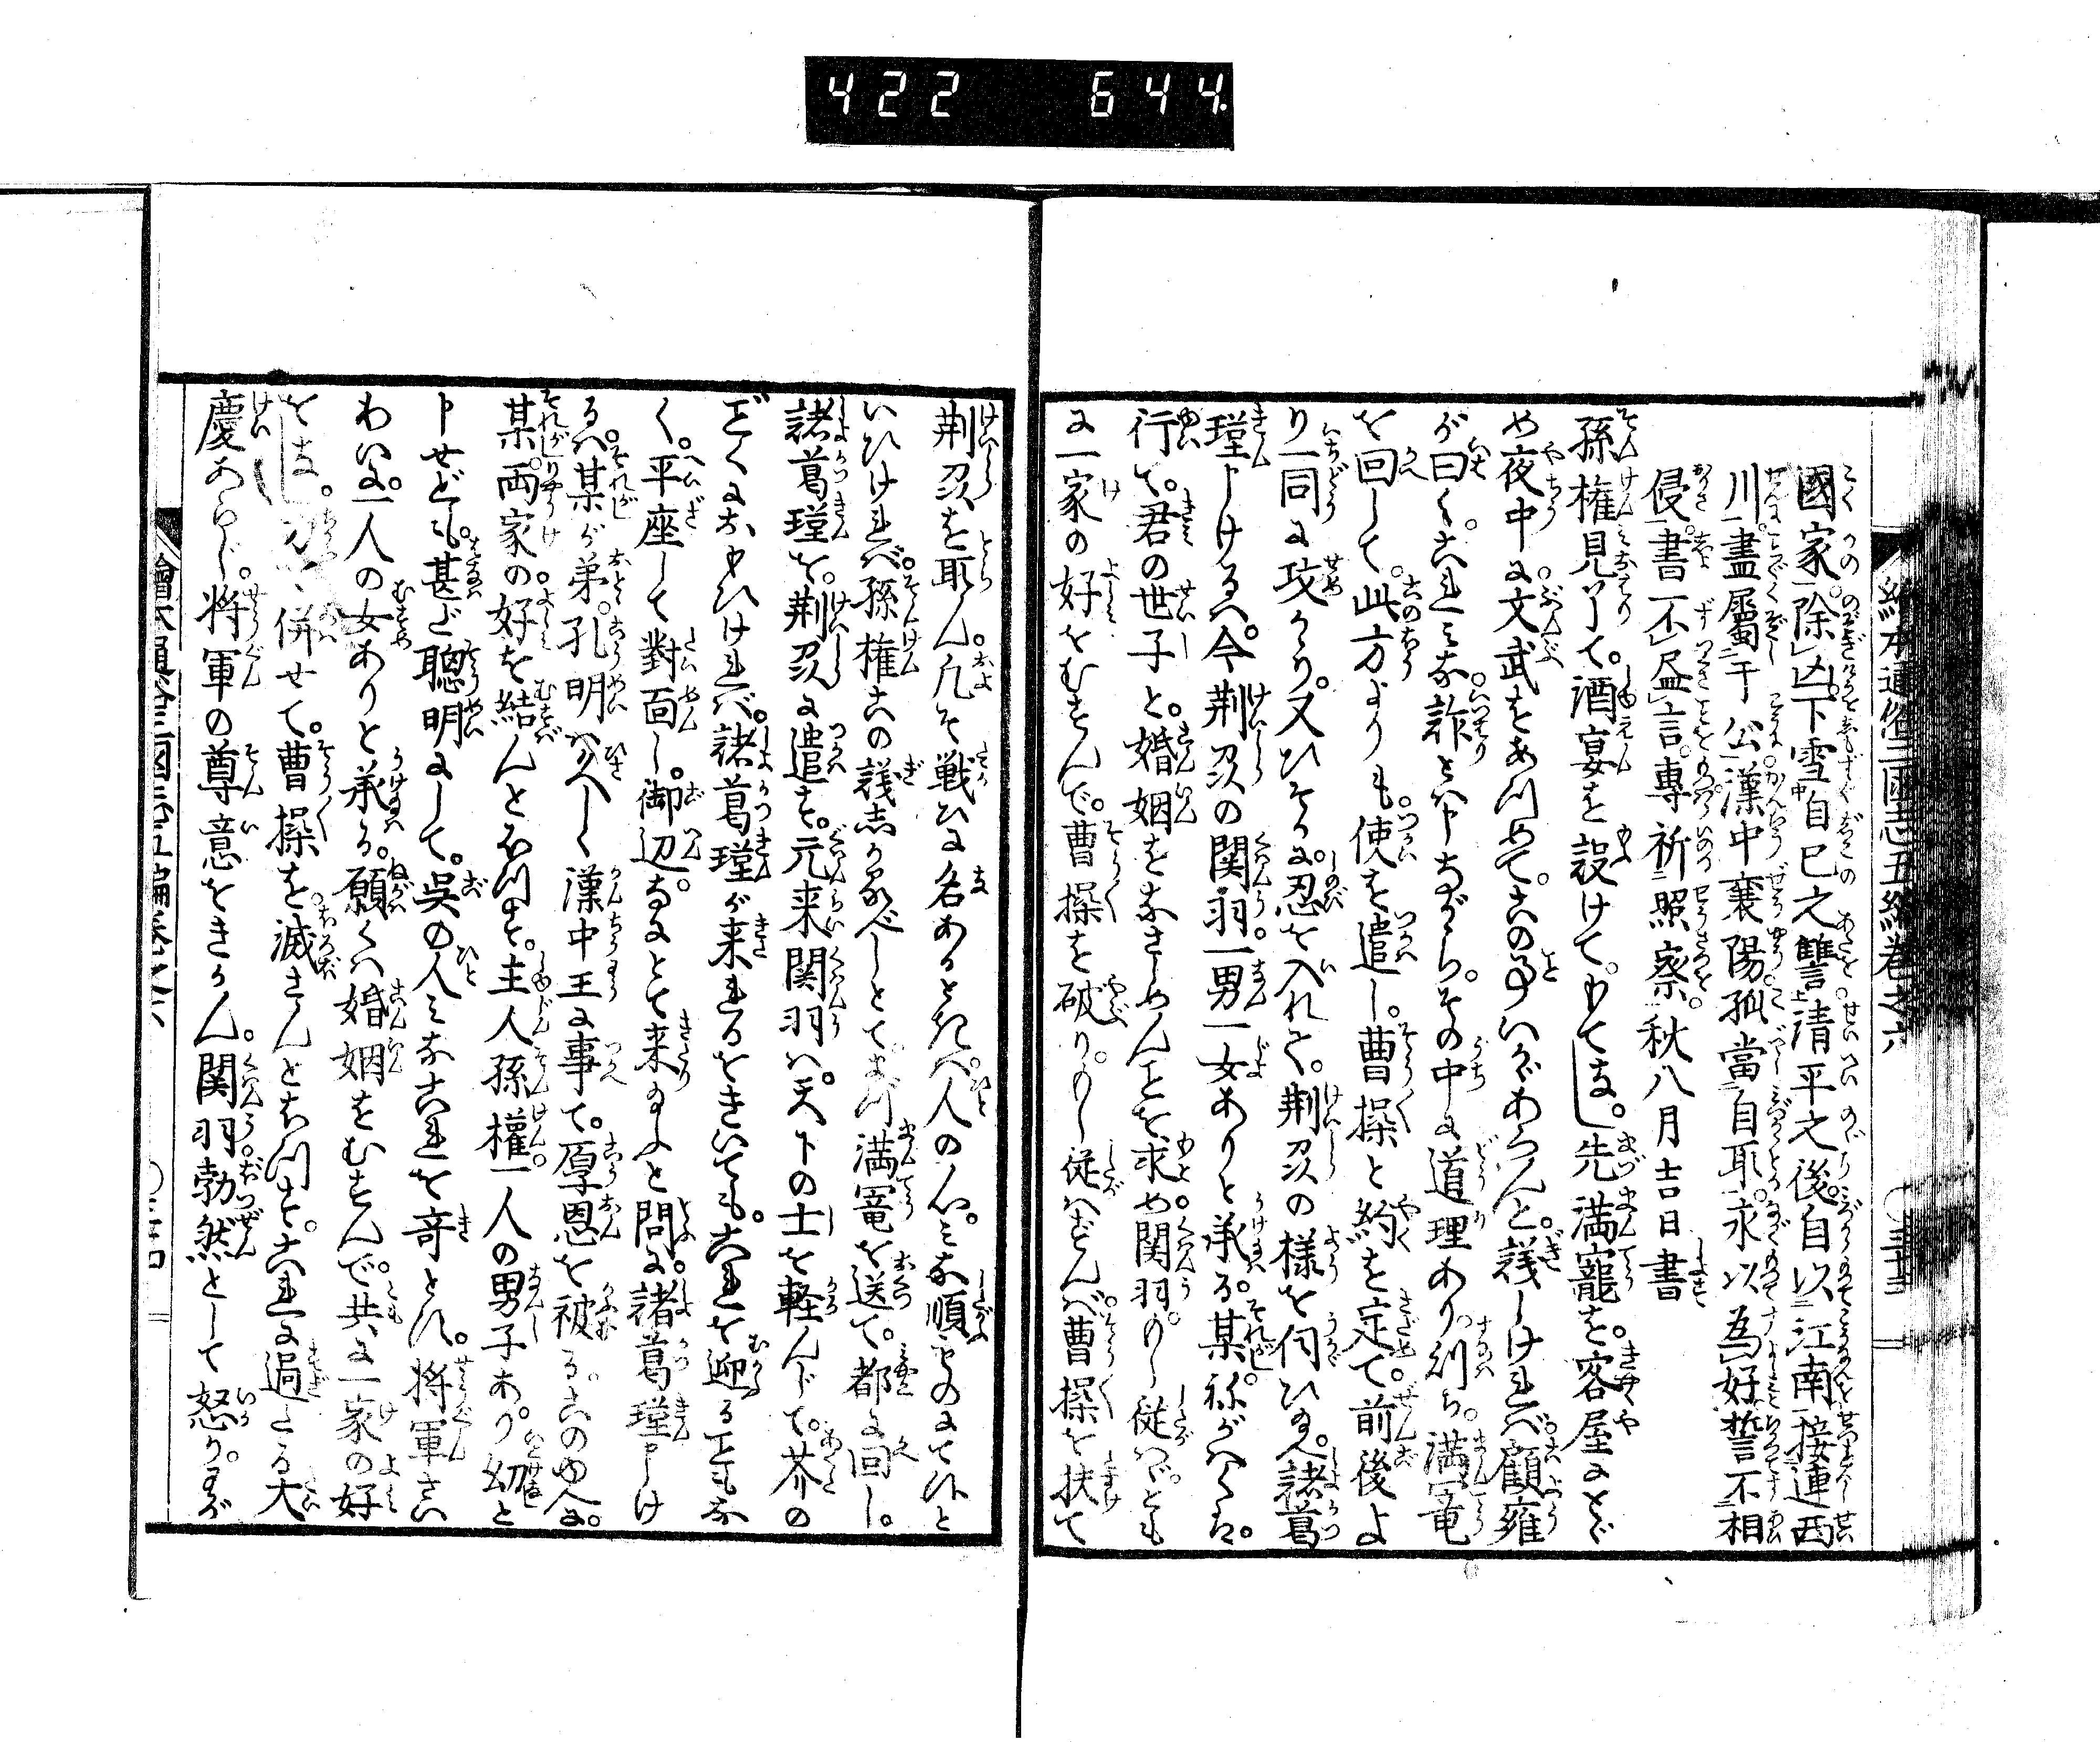 422 644
繪本通俗三國志五編巻之六 ○三十三
國家除凶下雪自巳之讐清平之後自以江南接連西
川盡屬于公漢中襄陽孤當自取永以為好誓不相
侵書不盡言專祈照察秋八月吉日書
孫権見了て。酒宴を設けてもてなし。先満寵を客屋にとゞ
め夜中に文武をあつめて。この事いかゞあらんと。議しければ。顧雍
が曰く。これみな詐とは申ながら。その中に道理あり。則ち。満寵
を回して。此方よりも。使を遣し。曹操と約を定て。前後よ
り一同に攻かゝり。又ひそかに。忍を入れて。荆州の様を伺ひ玉へ。諸葛
瑾申しけるは。今荆州の関羽。一男一女ありと承る。某。
行て。君の世子と。婚姻をなさしめんことを求め関羽。もし従はゞ。とも
に一家の好をむすんで。曹操を破り。もし従はずんば。曹操を扶て
荆州を取ん。凡そ戦ひに名あるときは。人の心。みな順ふものにて候と
いひければ。孫権この議しかるべしとて。まづ満寵を送て。都に回し。
諸葛瑾を。荆州に遣す。元来関羽は。天下の士を軽んじて。芥の
ごとくにおもひければ。諸葛瑾が来れるをきいても。これを迎ることもな
く。平座して對面し。御辺。なにとて来り玉ふと問に。諸葛瑾申しけ
るは。某が弟。孔明かたへしく漢中王に事て。厚恩を被る。このゆへに。
某。両家の好を結んとおもへり。主人孫權一人の男子あり。幼と
申せども。甚ど聰明にして。呉の人みなこれを奇とす。将軍さい
わいに。一人の女ありと承る。願くは婚姻をむすんで。共に一家の好
をなし。力を併せて。曹操を滅さんとおもへり。これに過たる大
慶あらじ。将軍の尊意をきかん。関羽勃然として怒り。わが
繪本通俗三國志五編巻之六 ○三十四